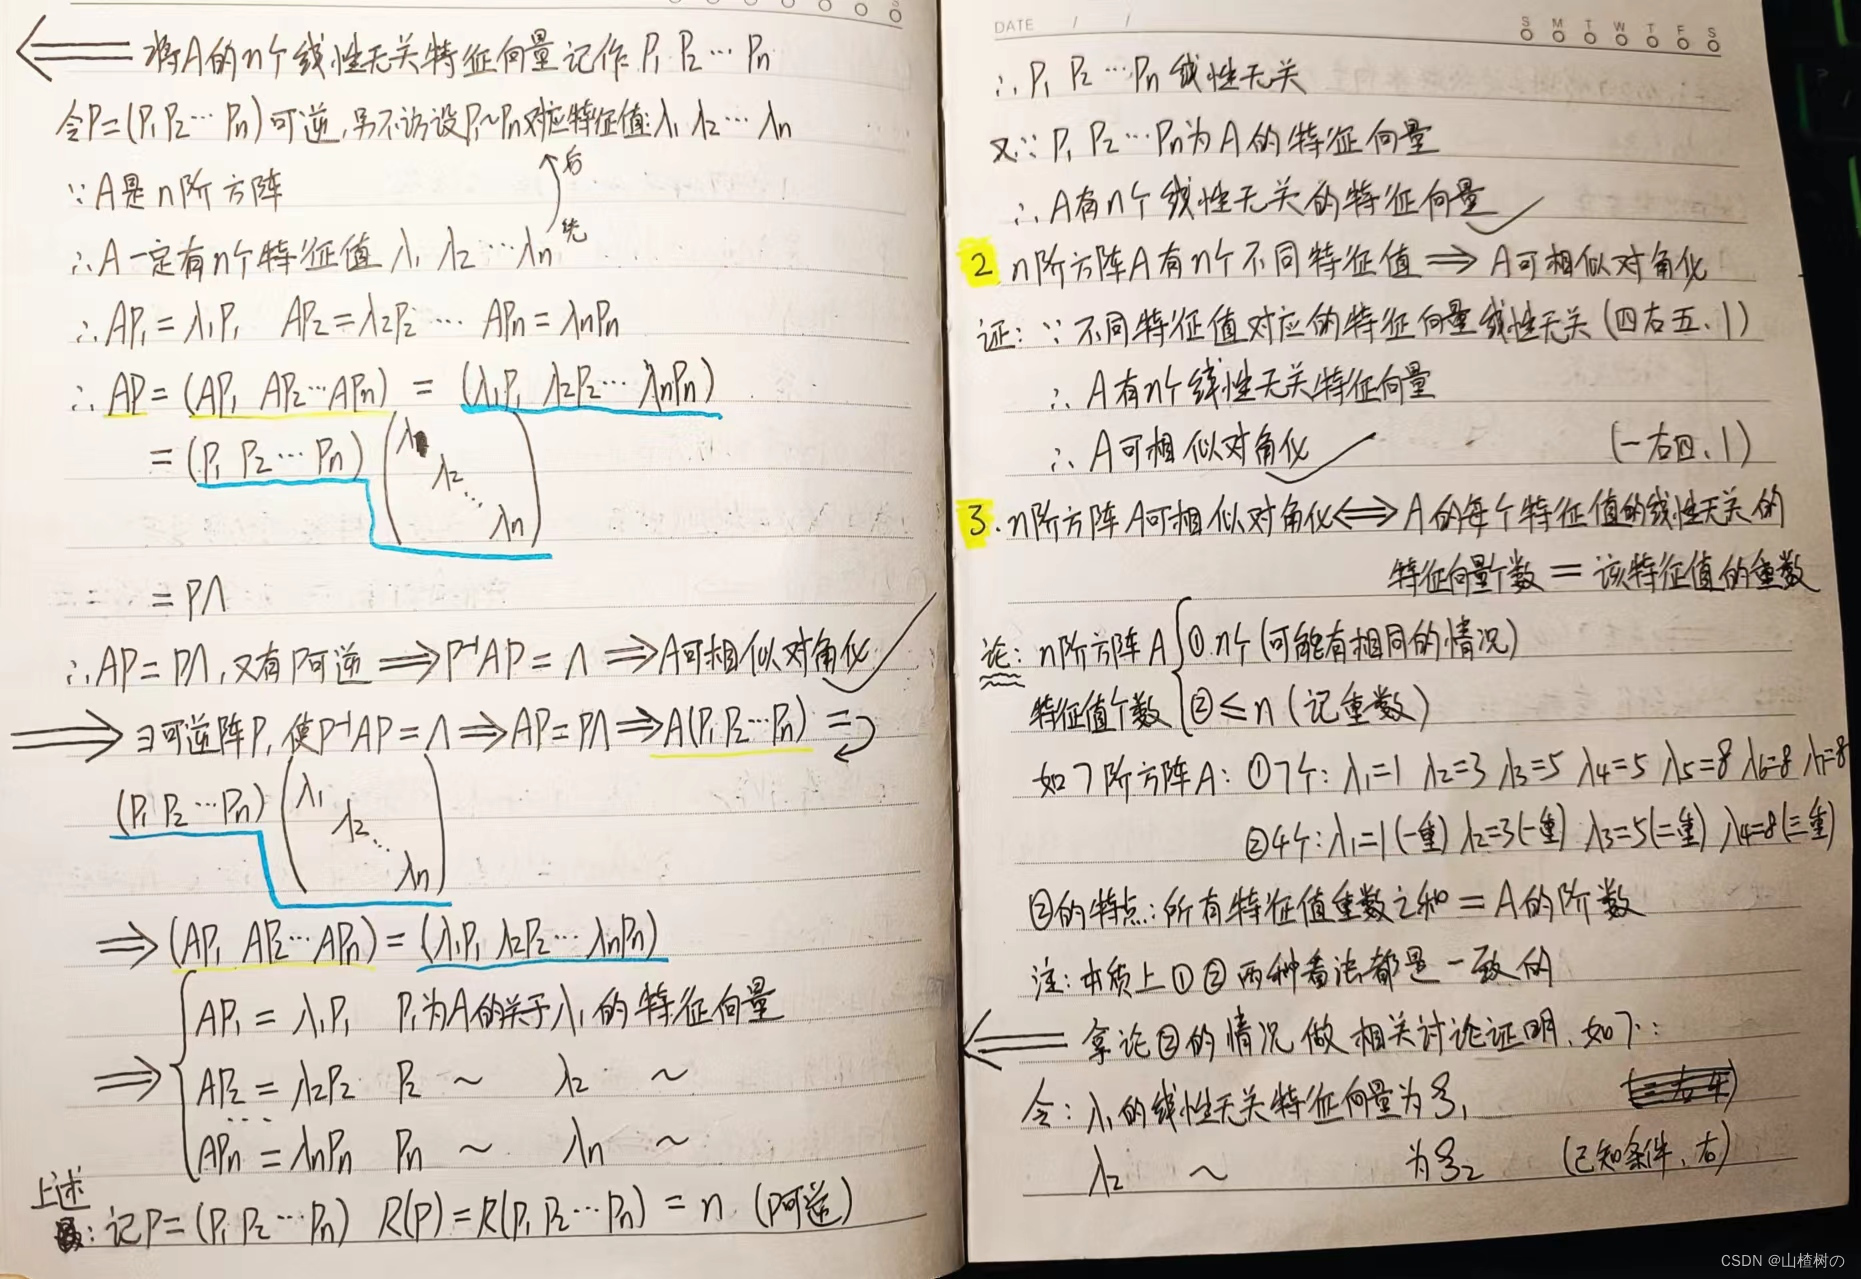 ⇐ 将A的n个线性无关特征向量记作 P₁ P₂ … Pn
令P=(P₁ P₂ … Pn)可逆,另不访设P₁~Pn对应特征值:λ₁ λ₂ … λn
后
∵A是n阶方阵
先
∴A一定有n个特征值 λ₁ λ₂ … λn
∴AP₁=λ₁P₁ AP₂=λ₂P₂ … APn=λnPn
∴AP=(AP₁ AP₂…APn) = (λ₁P₁ λ₂P₂… λnPn)
=(P₁ P₂ … Pn) (λ₁ λ₂ ⋱ λn)
= PΛ
∴AP=PΛ,又有P可逆 ⇒ P⁻¹AP=Λ ⇒ A可相似对角化 ✓
⇒ ∃可逆阵P,使P⁻¹AP=Λ ⇒ AP=PΛ ⇒ A(P₁ P₂…Pn) =
(P₁ P₂ …Pn) (λ₁ λ₂ ⋱ λn)
⇒ (AP₁ AP₂…APn)=(λ₁P₁ λ₂P₂… λnPn)
AP₁ = λ₁P₁ P₁为A的关于λ₁的特征向量
⇒ { AP₂ = λ₂P₂ P₂ ~ λ₂ ~
…
APn = λnPn Pn ~ λn ~
上述
:记P=(P₁ P₂ … Pn) R(P)=R(P₁ P₂ … Pn) = n (P可逆)
DATE / / S M T W T F S
∴P₁ P₂ … Pn 线性无关
又∵P₁ P₂ … Pn为A的特征向量
∴A有n个线性无关的特征向量 ✓
2 n阶方阵A有n个不同特征值 ⇒ A可相似对角化
证:∵不同特征值对应的特征向量线性无关(四右五、1)
∴A有n个线性无关特征向量
∴A可相似对角化 ✓ (一右四、1)
3.n阶方阵A可相似对角化⇔A的每个特征值的线性无关的
特征向量个数 = 该特征值的重数
论:n阶方阵A { ① n个(可能有相同的情况)
特征值个数 ② ≤n(记重数)
如7阶方阵A:①7个:λ₁=1 λ₂=3 λ₃=5 λ₄=5 λ₅=8 λ₆=8 λ₇=8
②4个:λ₁=1(一重) λ₂=3(一重) λ₃=5(二重) λ₄=8(三重)
②的特点:所有特征值重数之和=A的阶数
注:本质上①②两种看法都是一致的
⇐ 拿论②的情况做相关讨论证明,如下:
令:λ₁的线性无关特征向量为ξ₁
λ₂ ~ 为ξ₂ (已知条件、右)
CSDN @山楂树の